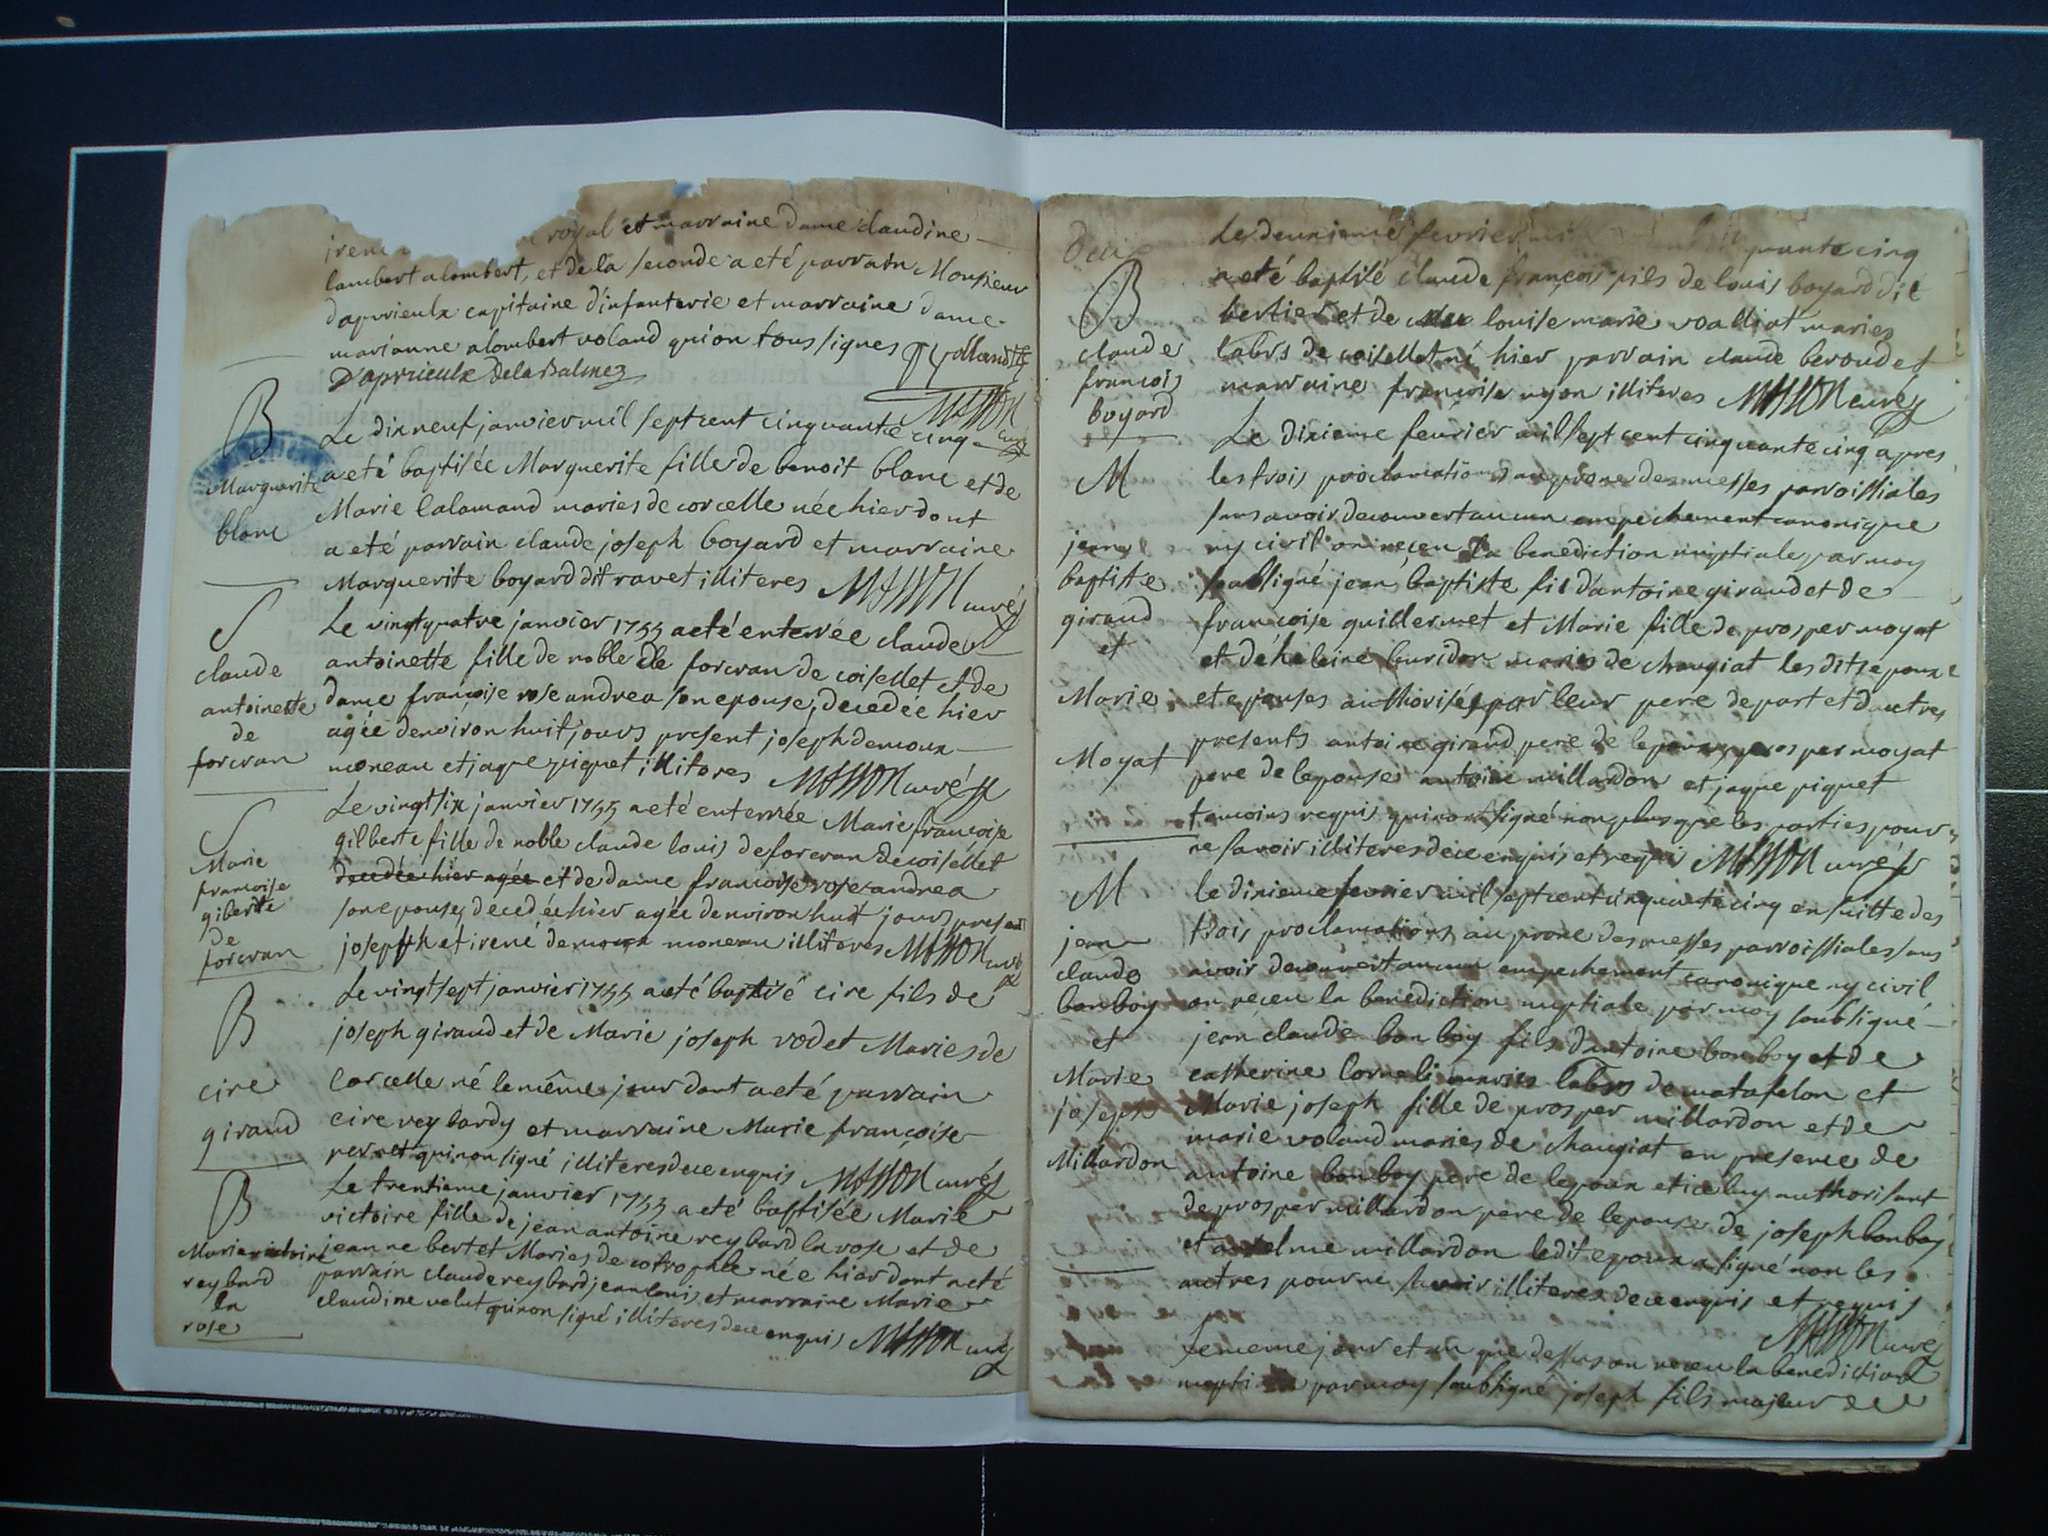 royal et marraine dame claudine
lambert alombert, et de la seconde a eté parrain Monsieur
daprieulx capitaine d'infanterie et marraine dame
marianne alombert voland qui on tous signes
D'aprieulx De la Balmez
MASSON curé
B
Marguerite
blanc
Le dixneuf janvier mil sept cent cinquante cinq
a eté baptisée Marguerite fille de benoit blanc et de
Marie Calamand maries de corcelle née hier dont
a eté parrain claude joseph boyard et marraine
Marguerite boyard dit ravet illiteres MASSON curé
S
claude
antoinette
de
forcran
Le vingtquatre janvier 1755 a eté enterrée claude
antoinette fille de noble de forcran de coisellet et de
dame françoise rose andrea son epouse, decedée hier
agée denviron huit jours present joseph demoux
moneau et jaque piquet illiteres MASSON curé
S
Marie
françoise
giberte
de
forcran
Le vingt six janvier 1755 a eté enterrée Marie françoise
gilberte fille de noble claude louis de forcran de coisellet
decedée hier agée et de dame françoise rose andrea
son epouse, decedée hier agée denviron huit jours present
joseph et irené demoux moneau illiteres MASSON curé
B
cire
giraud
Le vingt sept janvier 1755 a eté baptisé cire fils de
joseph giraud et de Marie joseph rodet Maries de
Corcelle né le même jour dont a eté parrain
cire reybardy et marraine Marie françoise
perret qui non signé illiteres de ce enquis MASSON curé
B
Marie victoire
reybard
la
rose
Le trentieme janvier 1755 a eté baptisée Marie
victoire fille de jean antoine reybard la rose et de
jeanne bertet Maries de cotrophle née hier dont a eté
parrain claude reybard jean louis, et marraine Marie
claudine velut qui non signé illiteres de ce enquis MASSON curé
B
claude
françois
boyard
Le deuxieme fevrier
a eté baptisé claude françois fils de louis boyard dit
bertier et de louise marie voalliat maries
labrs de coisellet né hier parrain claude beroud et
marraine françoise nyon illiteres MASSON curé
M
jean
baptiste
giraud
et
Marie
Moyat
Le dixieme fevrier mil sept cent cinquante cinq apres
les trois proclamations au prone des messes parroissiales
sans avoir decouvert aucun empechement canonique
ny civil on receu la benediction nuptiale par moy
soubsigné jean baptiste fil d'antoine giraud et de
françoise guillermet et Marie fille de prosper moyat
et de heleine buridon maries de changiat les dits epoux
et epouses authorisés par leur pere de part et d'autres
presents antoine giraud pere de lepoux, prosper moyat
pere de lepouse antoine millardon et jaque piquet
temoins requis qui non signé non plus que les parties pour
ne savoir illiteres de ce enquis et requis MASSON curé
M
jean
claude
bonboy
et
Marie
joseph
Millardon
le dixieme fevrier mil sept cent cinquante cinq en suitte des
trois proclamations au prone des messes parroissiales sans
avoir decouvert aucun empechement canonique ny civil
on receu la benediction nuptiale par moy soubsigné
jean claude bonboy fils d'antoine bonboy et de
catherine Corneli maries labrs de matafelon et
Marie joseph fille de prosper millardon et de
marie voland maries de changiat en presence de
antoine bonboy pere de lepoux et iceluy authorisant
de prosper millardon pere de lepouse de joseph bonboy
et anselme millardon ledit epoux a signé non les
autres pour ne savoir illiteres de ce enquis et requis
MASSON curé
Le meme jour et an que dessus on receu la benediction
par moy soubsigné joseph fils majeur de